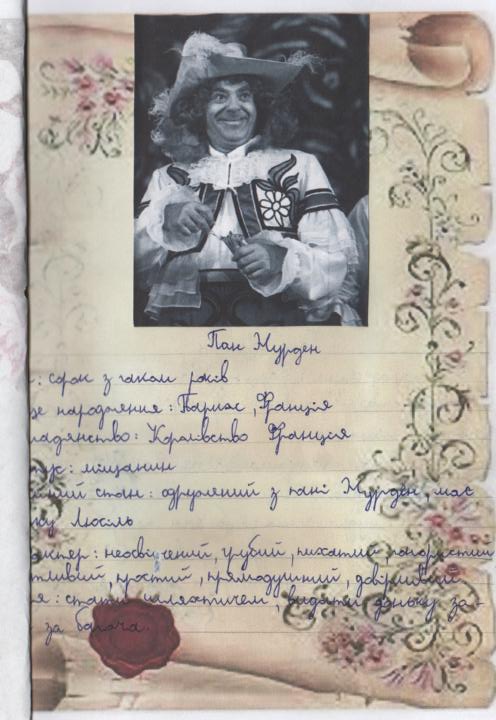 Пан Журден
: сорок з гаком років
це народження: Париж, Франція
адянство: Королівство Франція
тус: міщанин
ний стан: одружений з пані Журден, має
ку Люсіль
актер: неосвічений, грубий, пихатий,
тливий, простий, прямодушний, довірливий
я: стати шляхтичем, видати доньку за-
за багача.